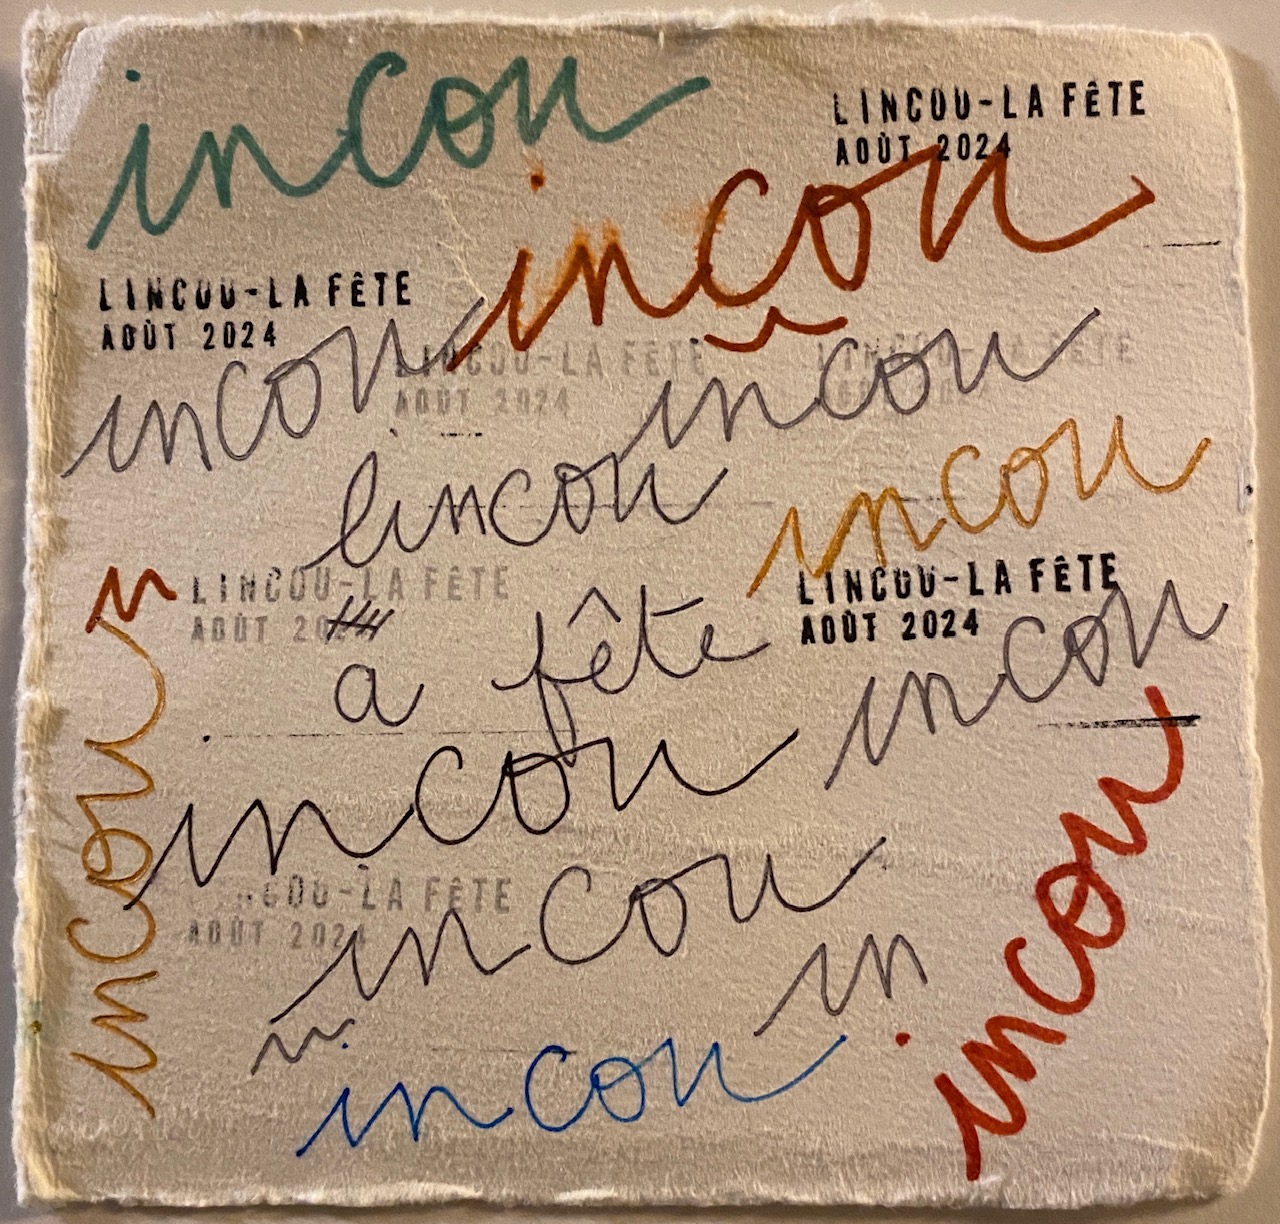 incou
LINCOU-LA FÊTE
AOÙT 2024
incou
LINCOU-LA FÊTE
AOÙT 2024
LINCOU-LA FÊTE
AOÙT 2024
LINCOU-LA FÊTE
incou
incou
lincou
incou
LINCOU-LA FÊTE
AOÙT 2024
LINCOU-LA FÊTE
AOÙT 2024
a fête
incou
incou
incou
INCOU-LA FÊTE
AOÙT 2024
incou
incou
in
in
incou
incou